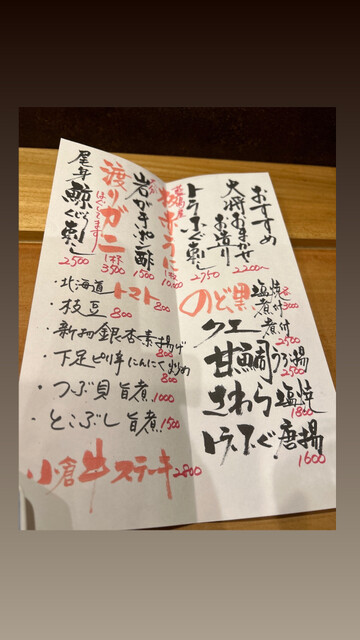 おすすめ
大将おまかせ
お造り 2200〜
トラふぐ刺し 2750
極赤うに 1枚 10,000
岩がきポン酢 1500
渡りガニ
ほぐしてます
1杯 3500
尾身 鯨くじら刺し 2500
のど黒 塩焼
煮付 3000
クエ 煮付 2500
甘鯛 うろこ揚 2500
さわら塩焼 1800
トラふぐ唐揚 1600
・北海道トマト 800
・枝豆 800
・新物銀杏素揚げ 800
・下足ピリ辛にんにく炒め 800
・つぶ貝旨煮 1000
とこぶし旨煮 1500
小倉牛ステーキ 2800